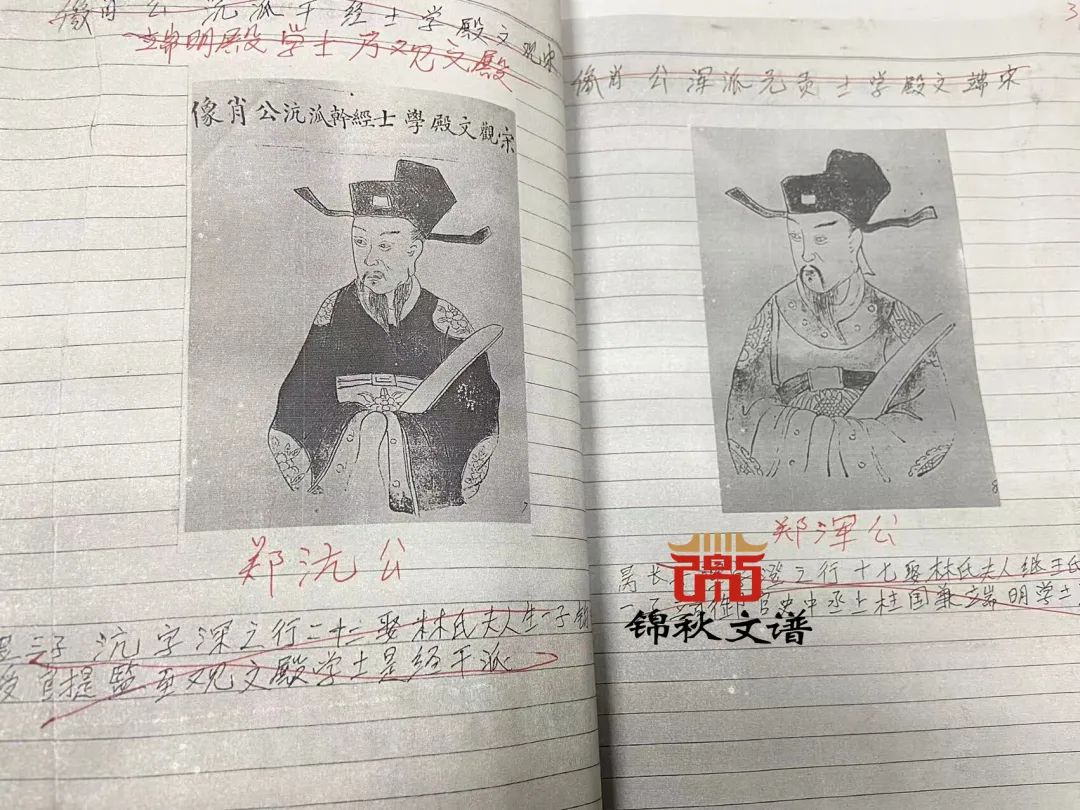 宋观文殿学士经干派沆公肖像
端明殿学士 观文殿
宋觀文殿學士經幹派沆公肖像
7
郑沆公
三子沆字深之行二十二娶林氏夫人生一子
受官提監至观文殿学士是经干派
3
宋端文殿学士贡元派浑公肖像
8
郑浑公
昺长 之行十七娶林氏夫人继王氏
官史中丞上柱国兼端明学士
锦秋文谱